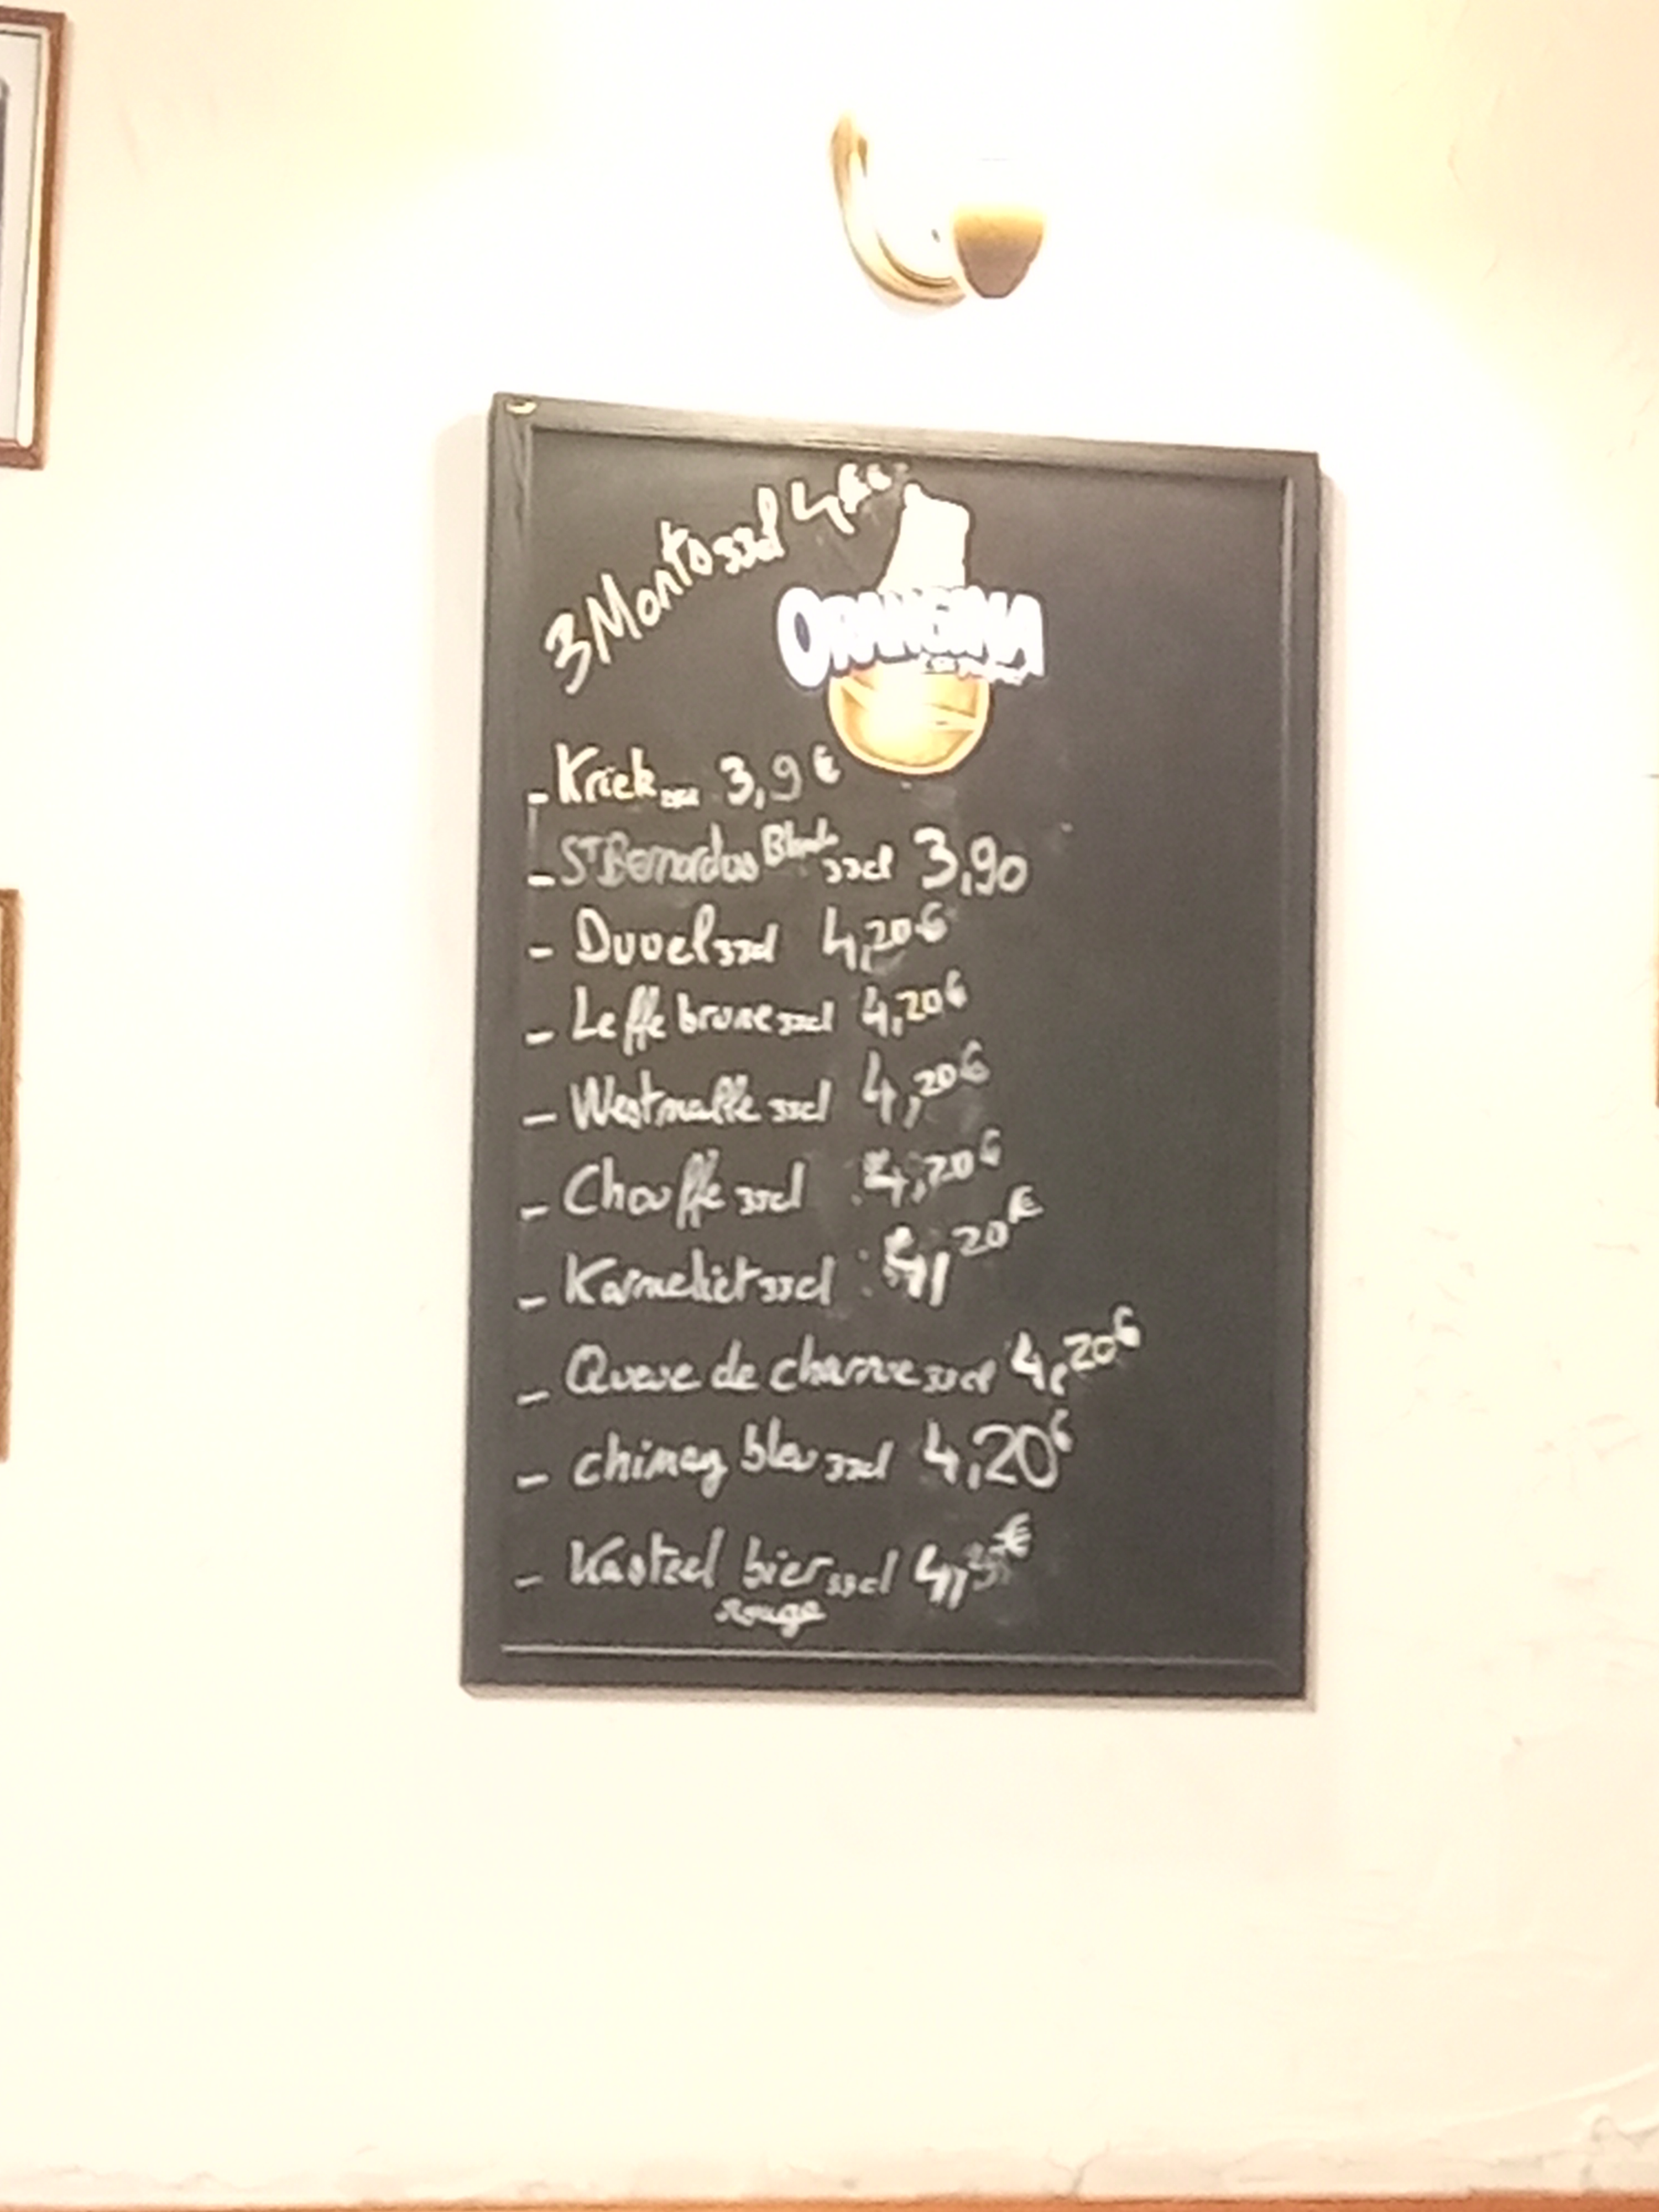 3 Monts 33cl
ORANGINA
- Kriek 3,9€
- St Bernardus 33cl 3,90
- Duvel 33cl 4,20€
- Leffe brune 33cl 4,20€
- Westmalle 33cl 4,20€
- Chouffe 33cl 4,20€
- Karmeliet 33cl 4,20€
- Queue de charrue 33cl 4,20€
- chimay bleu 33cl 4,20€
- Kasteel bier 33cl
rouge